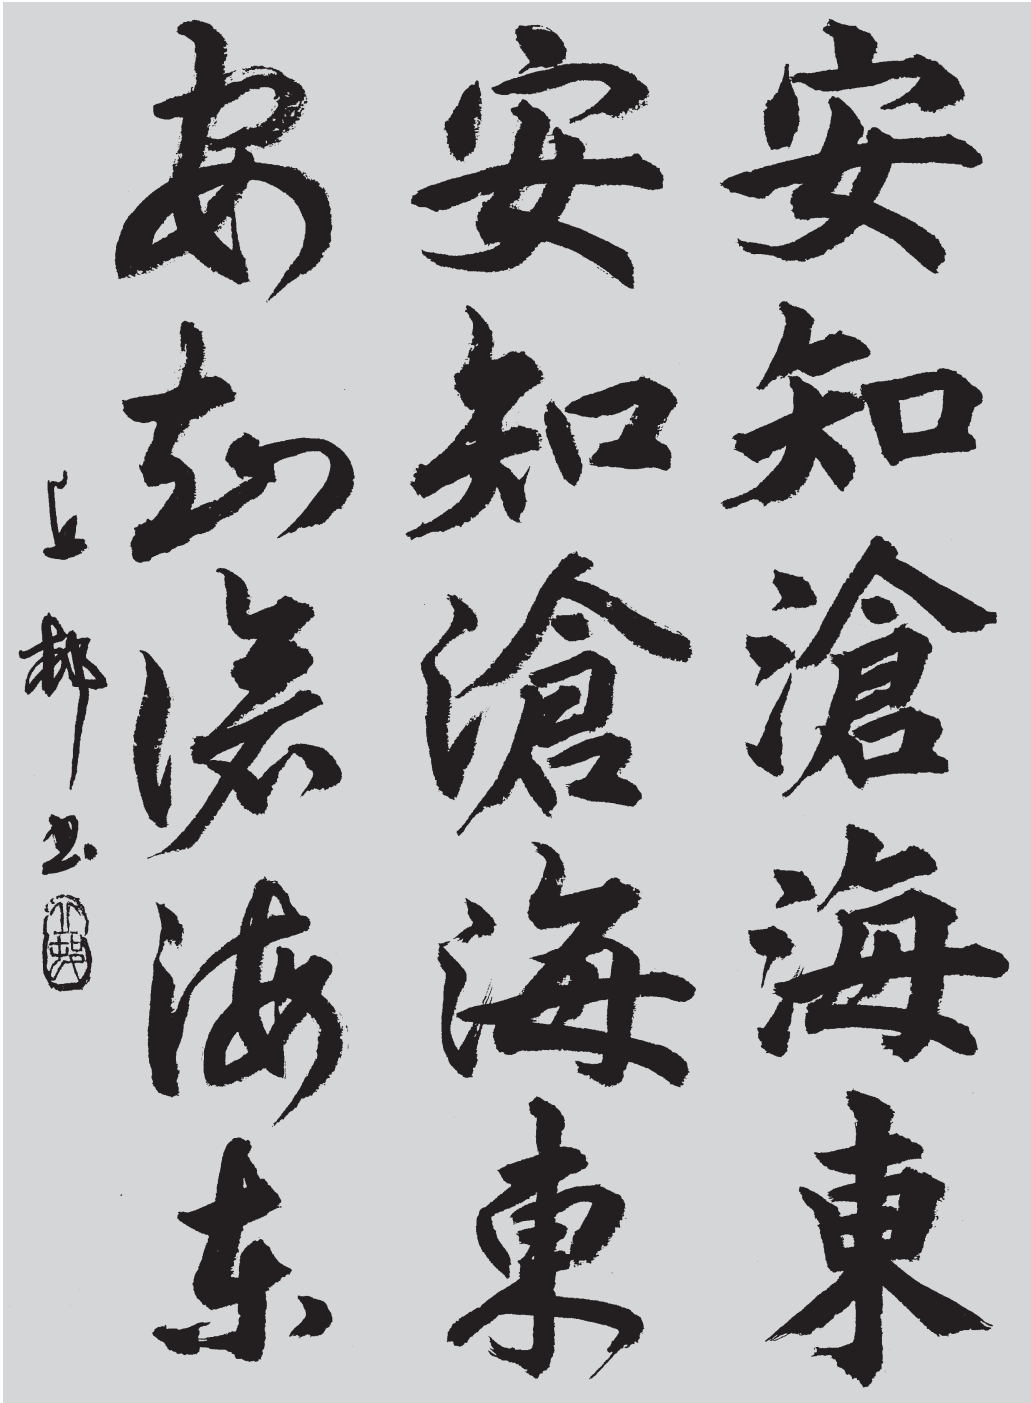 安知滄海東
安知滄海東
安知滄海东
上邨书